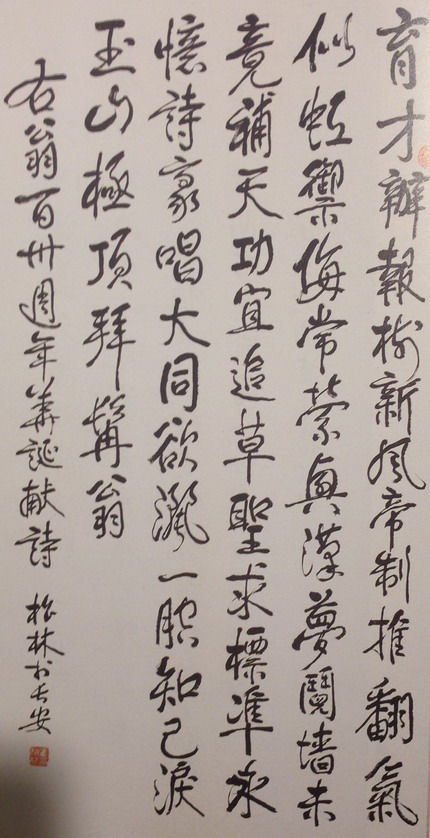 育才辦報樹新風帝制推翻氣
似虹禦侮常縈興漢夢鬩墻未
竟補天功宜追草聖求標準永
憶詩豪唱大同欲灑一腔知己淚
玉山極頂拜髯翁
右翁百卅週年華誕献詩 松林於長安